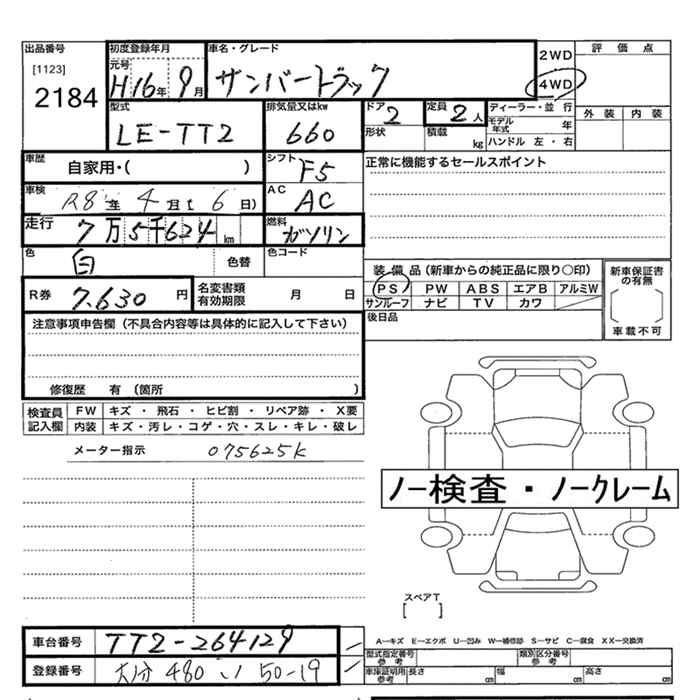 出品番号
[1123]
2184
初度登録年月
元号
H16年 9月
車名・グレード
サンバートラック
2WD
4WD
評価点
外装 内装
型式
LE-TT2
排気量又はkw
660
ドア
2
形状
定員
2人
積載
kg
ディーラー・並行
モデル年式 年
ハンドル 左・右
車歴
自家用・( )
シフト
F5
正常に機能するセールスポイント
車検
R8年 4月( 6日)
AC
AC
走行
7万5千624km
燃料
ガソリン
色
白
色替
色コード
R券
7.630円
名変書類有効期限 月 日
装備品(新車からの純正品に限り○印)
PS PW ABS エアB アルミW
サンルーフ ナビ TV カワ
後日品
新車保証書の有無
[ ]
車載不可
注意事項申告欄(不具合内容等は具体的に記入して下さい)
修復歴 有(箇所 )
検査員記入欄
FW キズ・飛石・ヒビ割・リペア跡・X要
内装 キズ・汚レ・コゲ・穴・スレ・キレ・破レ
メーター指示 075625K
ノー検査・ノークレーム
スペアT
[ ]
A…キズ E…エクボ U…凹み W…補修跡 S…サビ C…腐食 XX…交換済
車台番号 TT2-264129
登録番号 大分 480 い 50-19
型式指定番号 参考
類別区分番号 参考
車庫証明用参考 長さ cm 幅 cm 高さ cm